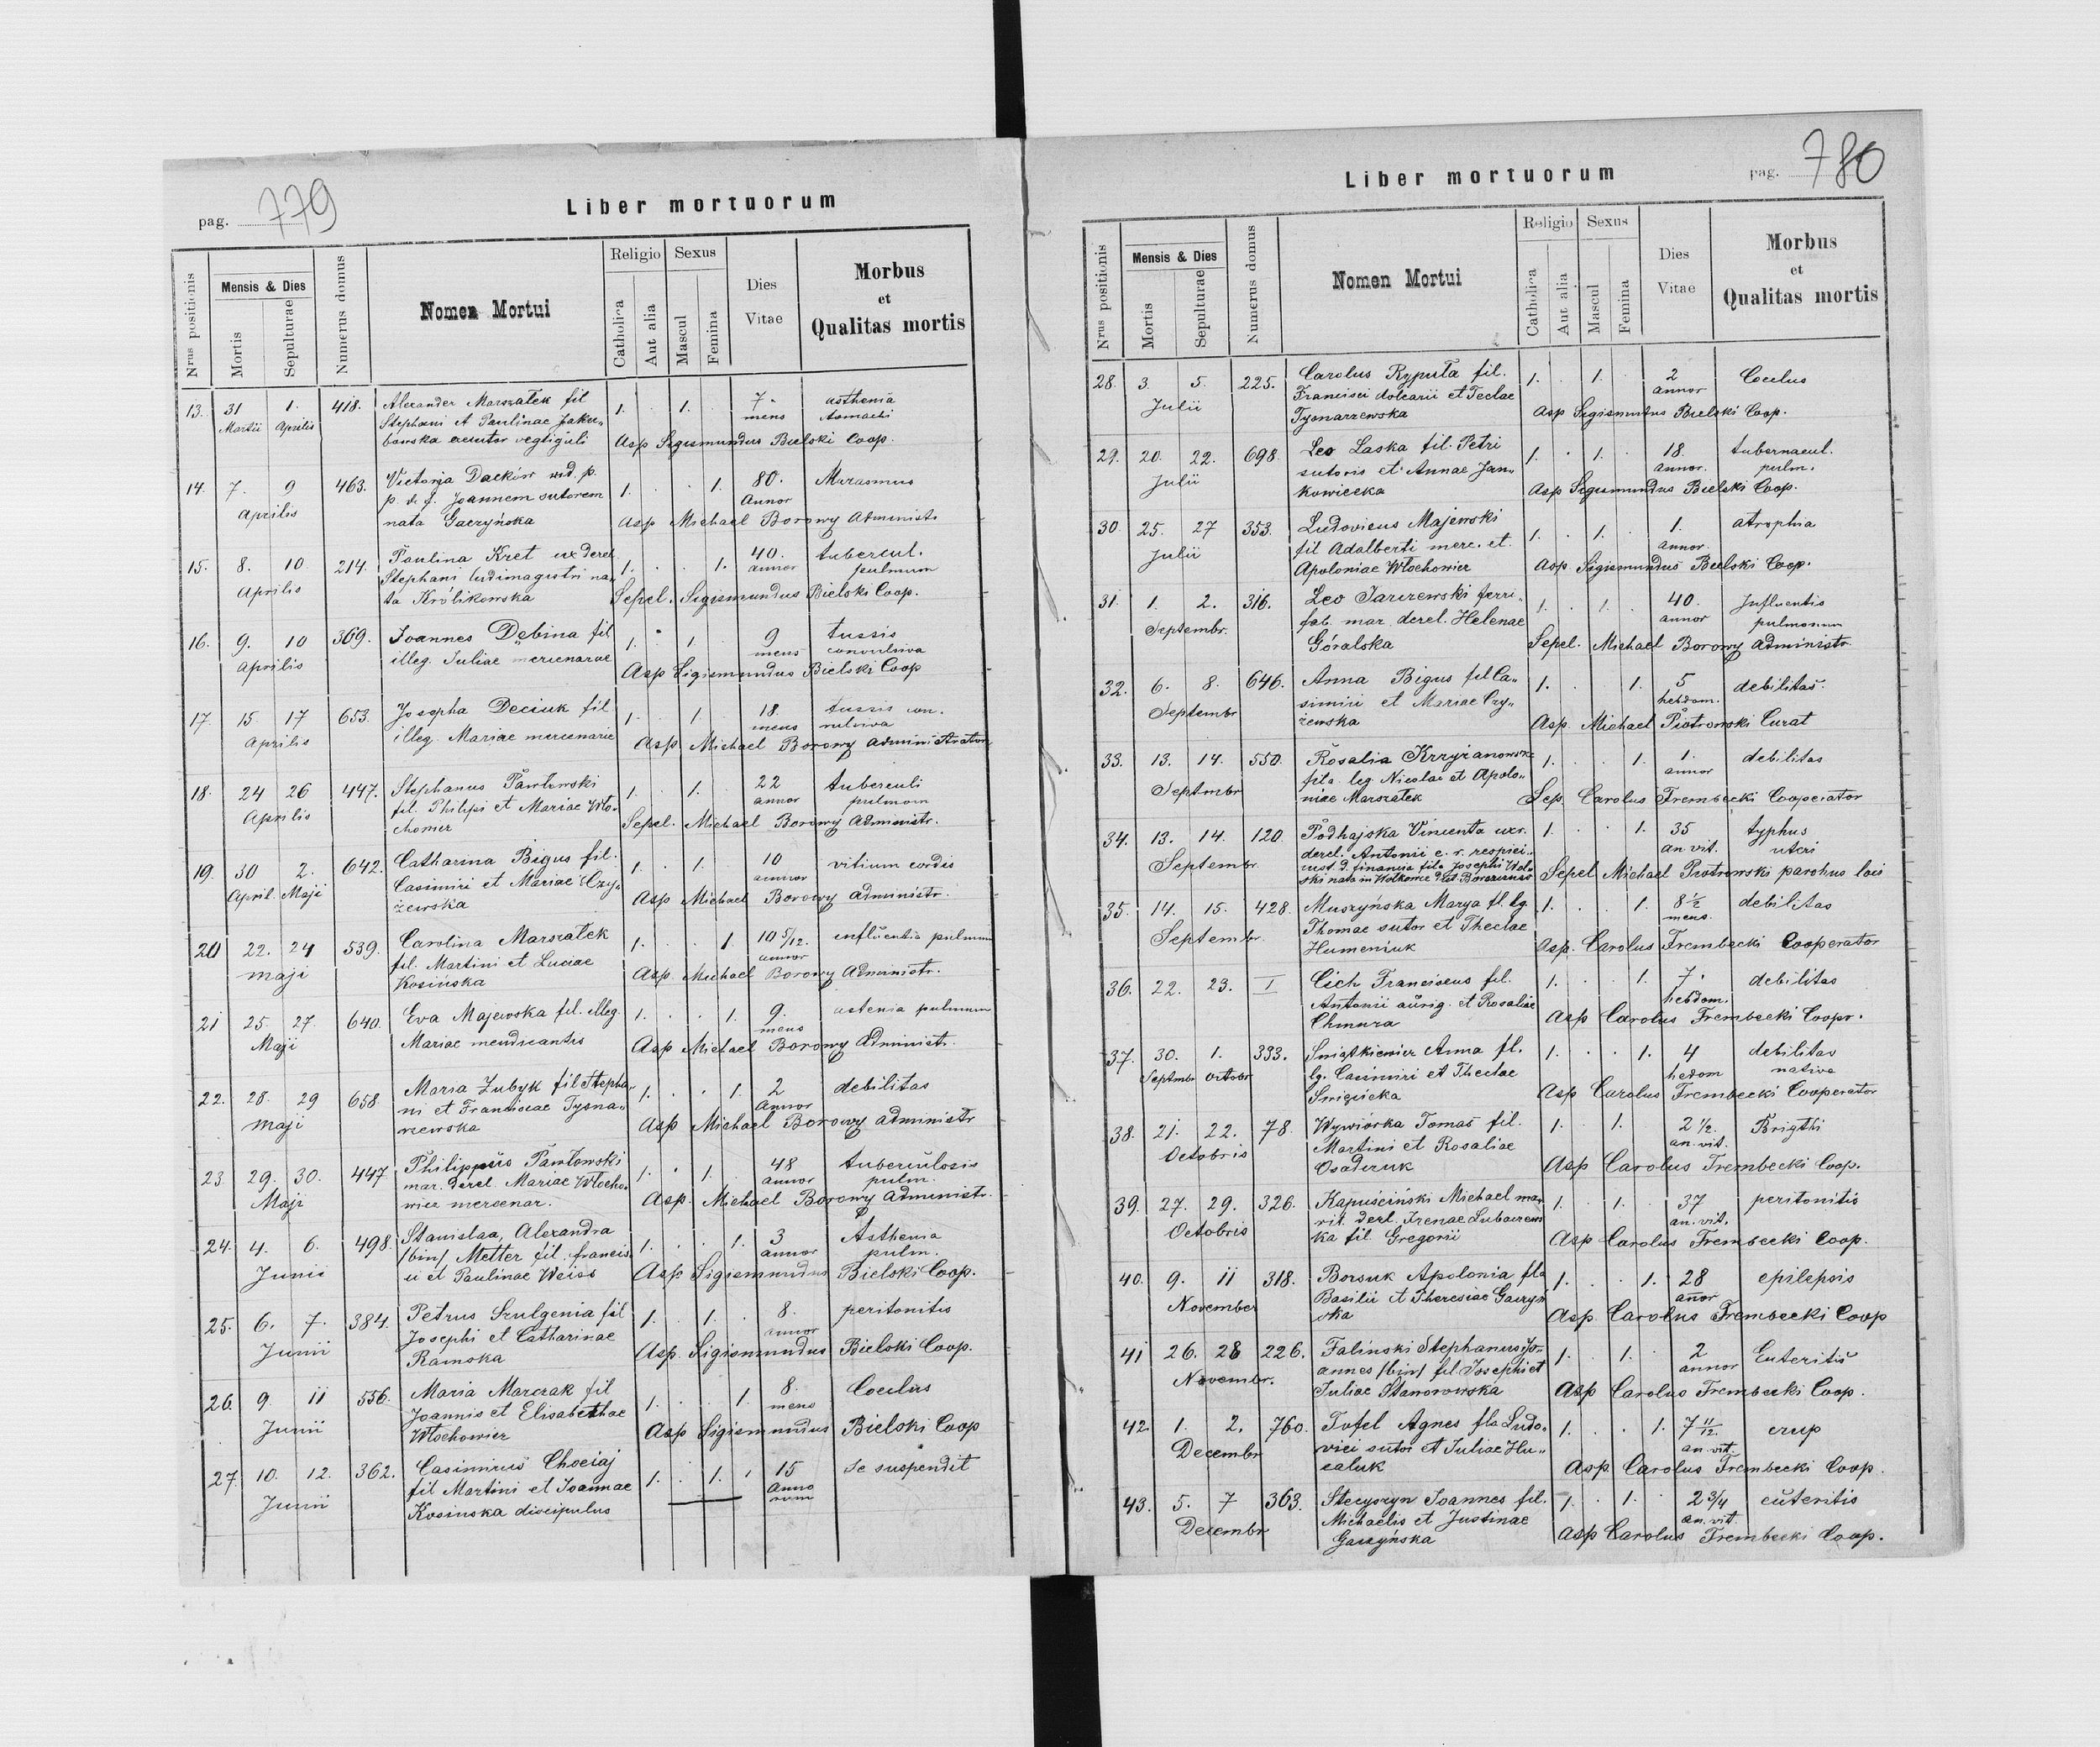 pag. 779
Liber mortuorum
Nrus positionis
Mensis & Dies
Mortis
Sepulturae
Numerus domus
Nomen Mortui
Religio
Catholica
Aut alia
Sexus
Mascul
Femina
Dies Vitae
Morbus et Qualitas mortis
13. 31 1. 418. Alexander Marszałek fil 1. 1. 7. asthenia
Martii Aprilis Stephani et Paulinae Jaku- mens
bowska Asp Sigismundus Bielski Coop.
14. 7. 9 463. Victoria Daeków vid. p. 1. 1. 80. Marasmus
Aprilis p. d. f. Joannem sutorem Annor
nata Gaczyńska Asp Michael Borowy Administr
15. 8. 10 214. Paulina Kret ux derel 1. 1. 40. tubercul.
Aprilis Stephani ludimagistri na- annor pulmum
ta Królikowska Sepel. Sigismundus Bielski Coop.
16. 9. 10 369. Joannes Dębina fil 1. 1 9 tussis
Aprilis illeg. Juliae mercenariae mens convulsiva
Asp Sigismundus Bielski Coop
17 15. 17 653. Josepha Deciuk fil 1. 1 18. tussis con-
Aprilis illeg. Mariae mercenarie mens vulsiva
Asp. Michael Borowy administrator
18. 24 26 447. Stephanus Pawłowski 1. 1. 22 tuberculi
Aprilis fil. Philippi et Mariae Wło- annor pulmom
chowicz Sepel. Michael Borowy Administr.
19. 30 2. 642. Catharina Bigus fil. 1. 1. 10 vitium cordis
April. Maji Casimiri et Mariae Czy- annor
żewska Asp Michael Borowy administr.
20 22. 24 539. Carolina Marszałek 1. 1 10 5/12. influentia pulmum
maji fil. Martini et Luciae annor
Kosińska Asp. Michael Borowy Administr.
21 25. 27. 640. Eva Majewska fil. illeg. 1. 1. 9. astenia pulmum
Maji Mariae mendicantis mens
Asp Michael Borowy Administr.
22. 28. 29 658 Maria Zubyk fil Stepha- 1. 1. 2 debilitas
maji ni et Franciscae Tysna- Annor
rzewska Asp Michael Borowy administr
23. 29. 30. 447 Philippus Pawłowski 1. 1. 48 tuberculosis
Maji mar. derel. Mariae Włocho- annor pulm.
wicz mercenar. Asp. Michael Borowy Administr.
24. 4. 6. 498. Stanislaa, Alexandra 1. 1. 3 Asthenia
Junii /bin/ Metter fil. Francis- annor pulm.
ci et Paulinae Weiss Asp Sigismundus Bielski Coop.
25. 6. 7. 384. Petrus Szulgenia fil 1. 1. 8. peritonitis
Junii Josephi et Catharinae annor
Ramska Asp. Sigismundus Bielski Coop.
26. 9. 11 556. Maria Marczak fil 1. 1. 8. Coculus
Junii Joannis et Elisabethae mens
Włochowicz Asp Sigismundus Bielski Coop
27. 10. 12. 362. Casimirus Chociaj 1. 1. 15 se suspendit
Junii fil Martini et Joannae Anno
Kosinska discipulus rum
pag. 780
Liber mortuorum
Nrus positionis
Mensis & Dies
Mortis
Sepulturae
Numerus domus
Nomen Mortui
Religio
Catholica
Aut alia
Sexus
Mascul
Femina
Dies Vitae
Morbus et Qualitas mortis
28. 3. 5. 225. Carolus Ryputa fil. 1. 1. 2 Coculus
Julii Francisci dolearii et Teclae annor
Tysnarzewska Asp Sigismundus Bielski Coop.
29. 20. 22. 698. Leo Laska fil. Petri 1. 1. 18. tubernacul.
Julii sutoris et Annae Jan- annor. pulm.
kowiecka Asp Sigismundus Bielski Coop.
30 25. 27 353. Ludovicus Majewski 1. 1. 1. atrophia
Julii fil Adalberti merc. et annor.
Apoloniae Włochowicz Asp. Sigismundus Bielski Coop.
31. 1. 2. 316. Leo Jarczewski ferri- 1. 1. 40. Influentis
Septembr. fab. mar. derel. Helenae annor pulmonum
Góralska Sepel. Michael Borowy Administr.
32. 6. 8. 646. Anna Bigus fil Ca- 1. 1. 5 debilitas.
Septembr simiri et Mariae Czy- hebdom.
żewska Asp. Michael Piotrowski Curat
33. 13. 14. 550. Rosalia Krzyżanowska 1. 1. 1. debilitas
Septmbr fila leg. Nicolai et Apolo- annor
niae Marszałek Sep. Carolus Trembecki Cooperator
34. 13. 14. 120. Podhajska Vincenta uxr. 1. 1. 35 typhus
Septembr. derel. Antonii c. r. respici- an. vit. uteri
Sepel Michael Piotrowski parohus loci
35. 14. 15. 428. Muszyńska Marya fl. lg. 1. 1. 8 1/2 debilitas
Septembr. Thomae sutor et Theclae mens.
Humeniuk Asp. Carolus Trembecki Cooperator
36. 22. 23. I Cich Franciscus fil. 1. 1. 7. debilitas
Antonii aurig. et Rosaliae hebdom.
Chmura Asp Carolus Trembecki Coopr.
37. 30. 1. 333. Świątkiewicz Anna fl. 1. 1. 4 debilitas
Septmbr octobr lg. Casimiri et Theclae hedom nativa
Asp Carolus Trembecki Cooperator
38. 21. 22. 78. Wywiórka Tomas fil. 1. 1. 2 1/2. Brigthi
Octobris Martini et Rosaliae an. vit.
Osadczuk Asp Carolus Trembecki Coop.
39. 27. 29. 326. Kapuściński Michael ma- 1. 1. 37 peritonitis
Octobris rit. derl. Irenae Lubaczews an. vit.
ka fil Gregorii Asp Carolus Trembecki Coop.
40. 9. 11 318. Borsuk Apolonia fla 1. 1. 28 epilepsis
November Basilii et Theresiae Gaczyń anor
ska Asp. Carolus Trembecki Coop
41 26. 28 226. Falinski Stephanus Jo- 1. 1. 2 Enteritis
Novembr. annes /bin/ fil Josephi et annor
Juliae Stanorowska Asp Carolus Trembecki Coop.
42. 1. 2. 760. Tofel Agnes fla Ludo- 1. 1. 7 11/12. crup
Decembr vici sutor et Juliae Hu- an. vit.
caluk Asp. Carolus Trembecki Coop.
43. 5. 7 363. Stecyszyn Joannes fil. 1. 1. 2 3/4 enteritis
Decembr Michaelis et Justinae an. vit.
Gaczyńska Asp Carolus Trembecki Coop.